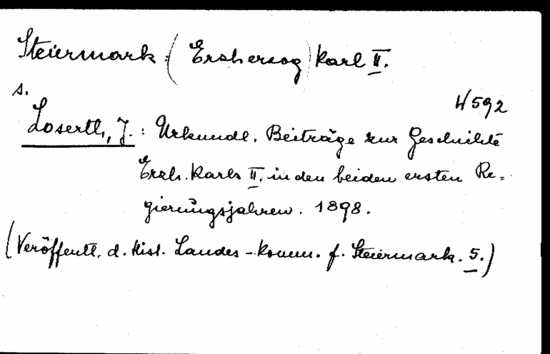 Steiermark: (Erzherzog) Karl II.
s.
W592
Loserth, J.: Urkundl. Beiträge zur Geschichte
Erzh. Karls II. in den beiden ersten Re-
gierungsjahren. 1898.
(Veröffentl. d. Hist. Landes-Komm. f. Steiermark. 5.)